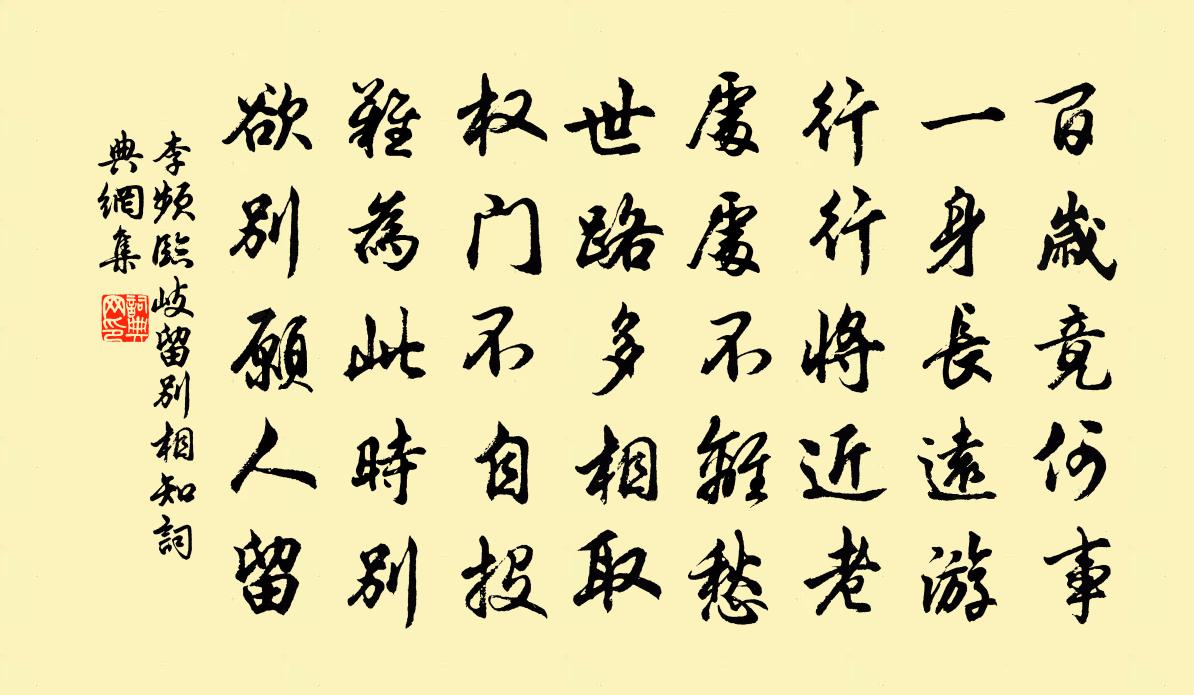 百歲竟何事
一身長遠游
行行將近老
處處不離愁
世路多相取
权门不自投
難為此時別
欲別願人留
李頻臨岐留別相知詞
典網集
詞典
网印